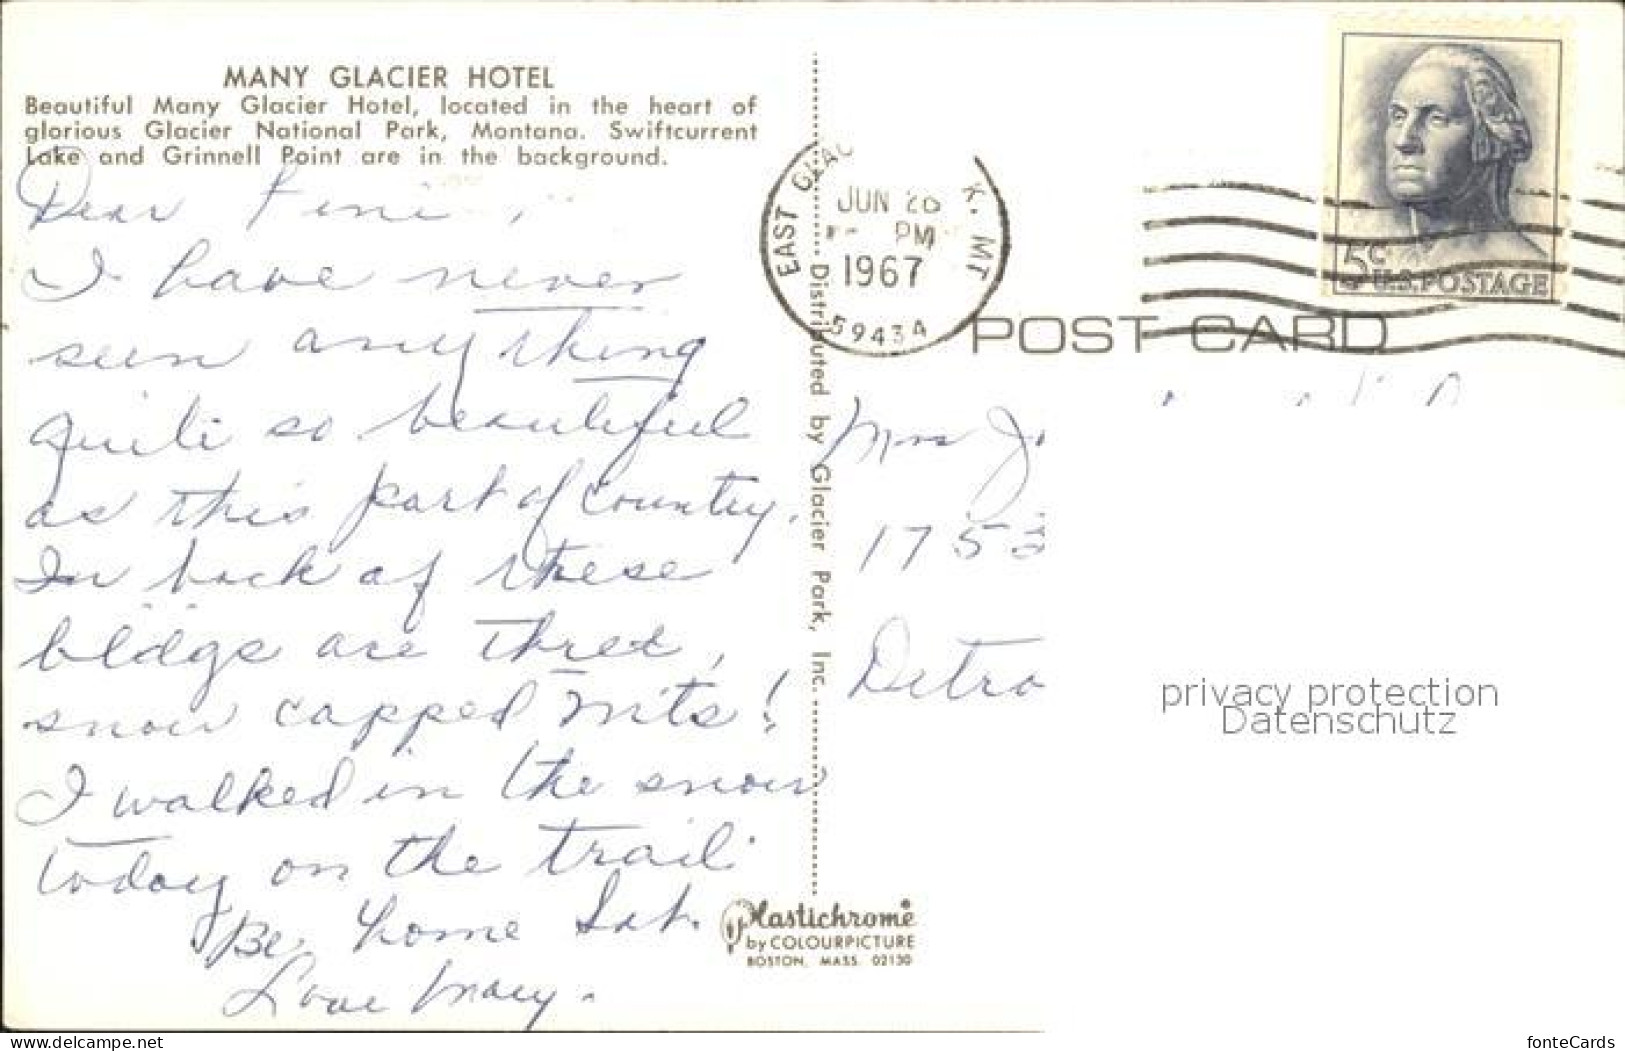 MANY GLACIER HOTEL
Beautiful Many Glacier Hotel, located in the heart of
glorious Glacier National Park, Montana. Swiftcurrent
Lake and Grinnell Point are in the background.
Dear
I have never
seen anything
quite so beautiful
as this part of country.
In back of these
bldgs are three,
snow capped mts!
I walked in the snow
today on the trail
Be home Sat.
Love Mary.
EAST GLAC K. MT
JUN 26
PM
1967
59434
5c
U.S. POSTAGE
POST CARD
Distributed by Glacier Park, Inc.
Mrs
1753
Detro
privacy protection
Datenschutz
Plastichrome
by COLOURPICTURE
BOSTON, MASS. 02130
www.delcampe.net
fonteCards